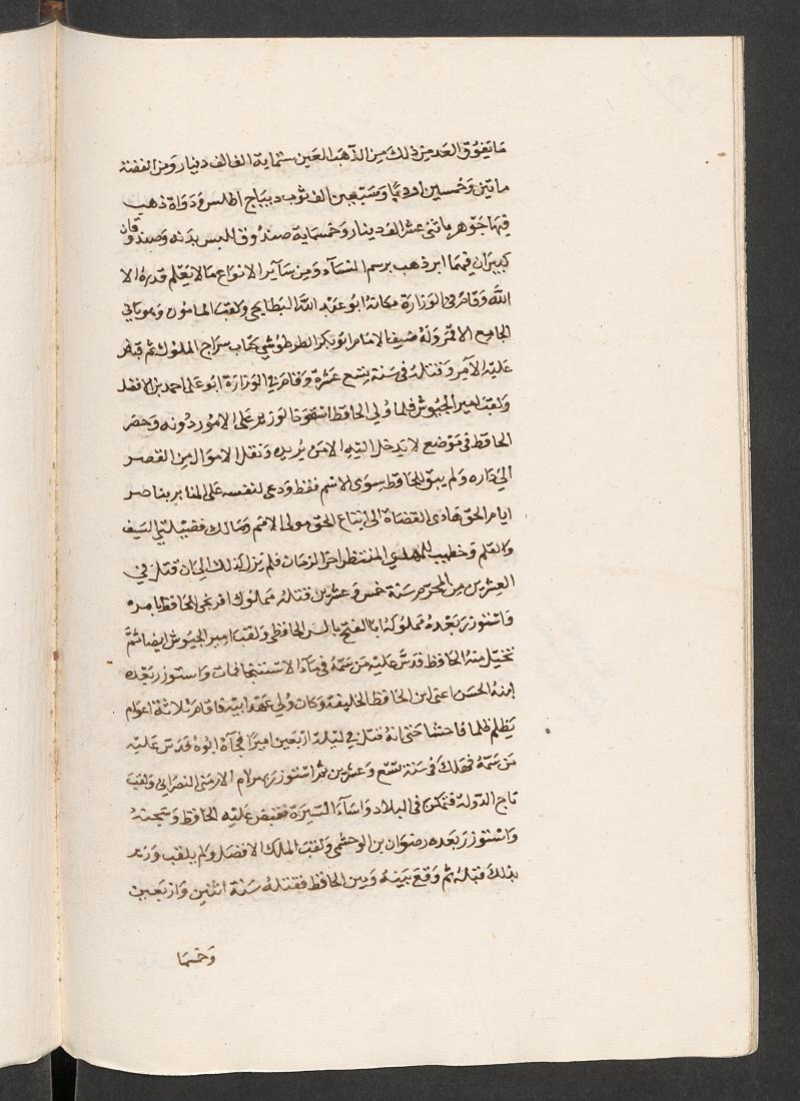 ما يفوق العد من ذلك من الذهب العين ستماية الف الف دينار ومن الفضة
ماتين وخمسين اردبا وسبعين الف ثوب ديباج اطلس ودواة ذهب
فيها جوهر باثنى عشر الف دينار وخمسماية صندوق للبس بدنه وصندوقان
كبيران فيهما ابر ذهب برسم النساء ومن سآير الانواع ما لا يعلم قدره الا
الله وقام في الوزارة مكانه ابو عبد الله البطايحى ولقب المامون وهو بانى
الجامع الاقمر وله صنف الامام ابو بكر الطرطوشي كتاب سراج الملوك ثم قبض
عليه الآمر وقتله في سنة تسع عشرة وقام في الوزارة ابو على احمد بن الافضل
ولقب امير الجيوش فلما ولي الحافظ استحوذ الوزير على الامور دونه وحصر
الحافظ في موضع لا يدخل اليه الا من يريده ونقل الاموال من القصر
الى داره ولم يبق للحافظ سوى الاسم فقط ودعى لنفسه على المنابر بناصر
ايام الحق هادى القضاة الى اتباع الحق مولى الامم ومالك فضيلتي السيف
والقلم وخطب للمهدي المنتظر اخر الزمان فلم يزل كذلك الى ان قتل في
العشرين من المحرم سنة خمس وعشرين قتله مملوك افرنجى للحافظ بامره
واستوزر بعده مملوكه ابا الفتح يانس الحافظى ولقب امير الجيوش ايضا ثم
تخيل منه الحافظ فدس عليه من سمه في مآء الاستنجا فمات واستوزر بعده
ابنه الحسن اعنى ابن الحافظ الخليفة وكان ولي عهد ابيه فاقام ثلاثة اعوام
يظلم ظلما فاحشا حتى انه قتل في ليلة اربعين اميرا فجآه ابوه فدس عليه
من سمه فهلك في سنة تسع وعشرين ثم استوزر بهرام الارمنى النصرانى ولقب
تاج الدولة فتمكن في البلاد واسآء السيرة فقبض عليه الحافظ وسجنه
واستوزر بعده رضوان بن الوحشى ولقب الملك الافضل ولم يلقب وزير
بذلك قبله ثم وقع بينه وبين الحافظ فقتله سنة اثنين واربعين
وخمسا